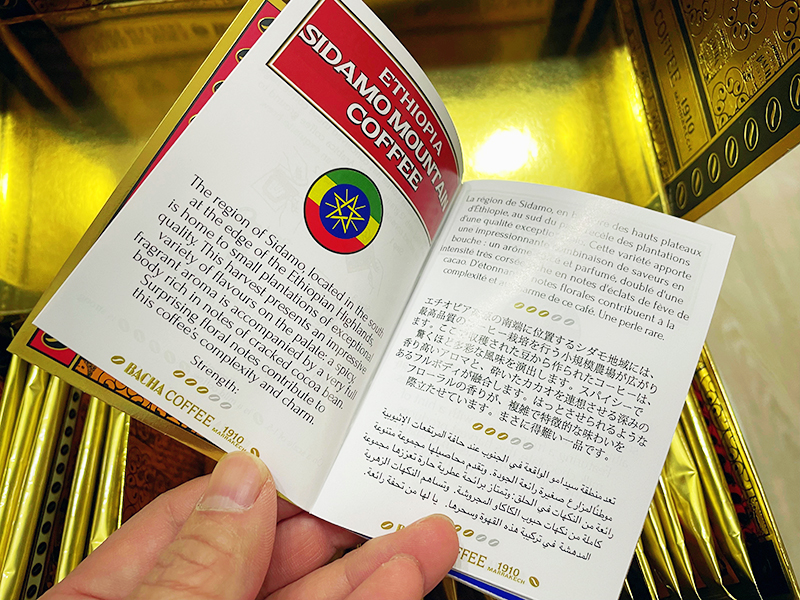 ETHIOPIA
SIDAMO MOUNTAIN
COFFEE
The region of Sidamo, located in the south
at the edge of the Ethiopian Highlands,
is home to small plantations of exceptional
quality. This harvest presents an impressive
variety of flavours on the palate: a spicy,
fragrant aroma is accompanied by a very full
body rich in notes of cracked cocoa bean.
Surprising floral notes contribute to
this coffee's complexity and charm.
Strength.
BACHA COFFEE 1910
MARRAKECH
La région de Sidamo, en des hauts plateaux
d'Éthiopie, au sud du recèle des plantations
d'une qualité exceptionnelle. Cette variété apporte
une impressionnante combinaison de saveurs en
bouche : un arôme parfumé, doublé d'une
intensité très corsée en notes d'éclats de fève de
cacao. D'étonnantes notes florales contribuent à la
complexité et au charme de ce café. Une perle rare.
エチオピア の南端に位置するシダモ地域には、
最高品質のコーヒー栽培を行う小規模農場が広がり
ます。ここで収穫された豆から作られたコーヒーは、
驚くほど多彩な風味を演出します。スパイシーで
香り高いアロマと、砕いたカカオを連想させる深みの
あるフルボディが融合します。はっとさせられるような
フローラルの香りが、複雑で特徴的な味わいを
際立たせています。まさに得難い一品です。
تعد منطقة سيدامو الواقعة في الجنوب عند حافة المرتفعات الاثيوبية
موطنًا لمزارع صغيرة رائعة الجودة. وتقدم محاصيلها مجموعة متنوعة
رائعة من النكهات في الحلق: وتمتاز برائحة عطرية حارة تعززها مجموعة
كاملة من نكهات حبوب الكاكاو المجروشة. وتساهم النكهات الزهرية
المدهشة في تركيبة هذه القهوة وسحرها. يا لها من تحفة رائعة.
COFFEE 1910
MARRAKECH
BACHA COFFEE 1910
MARRAKECH